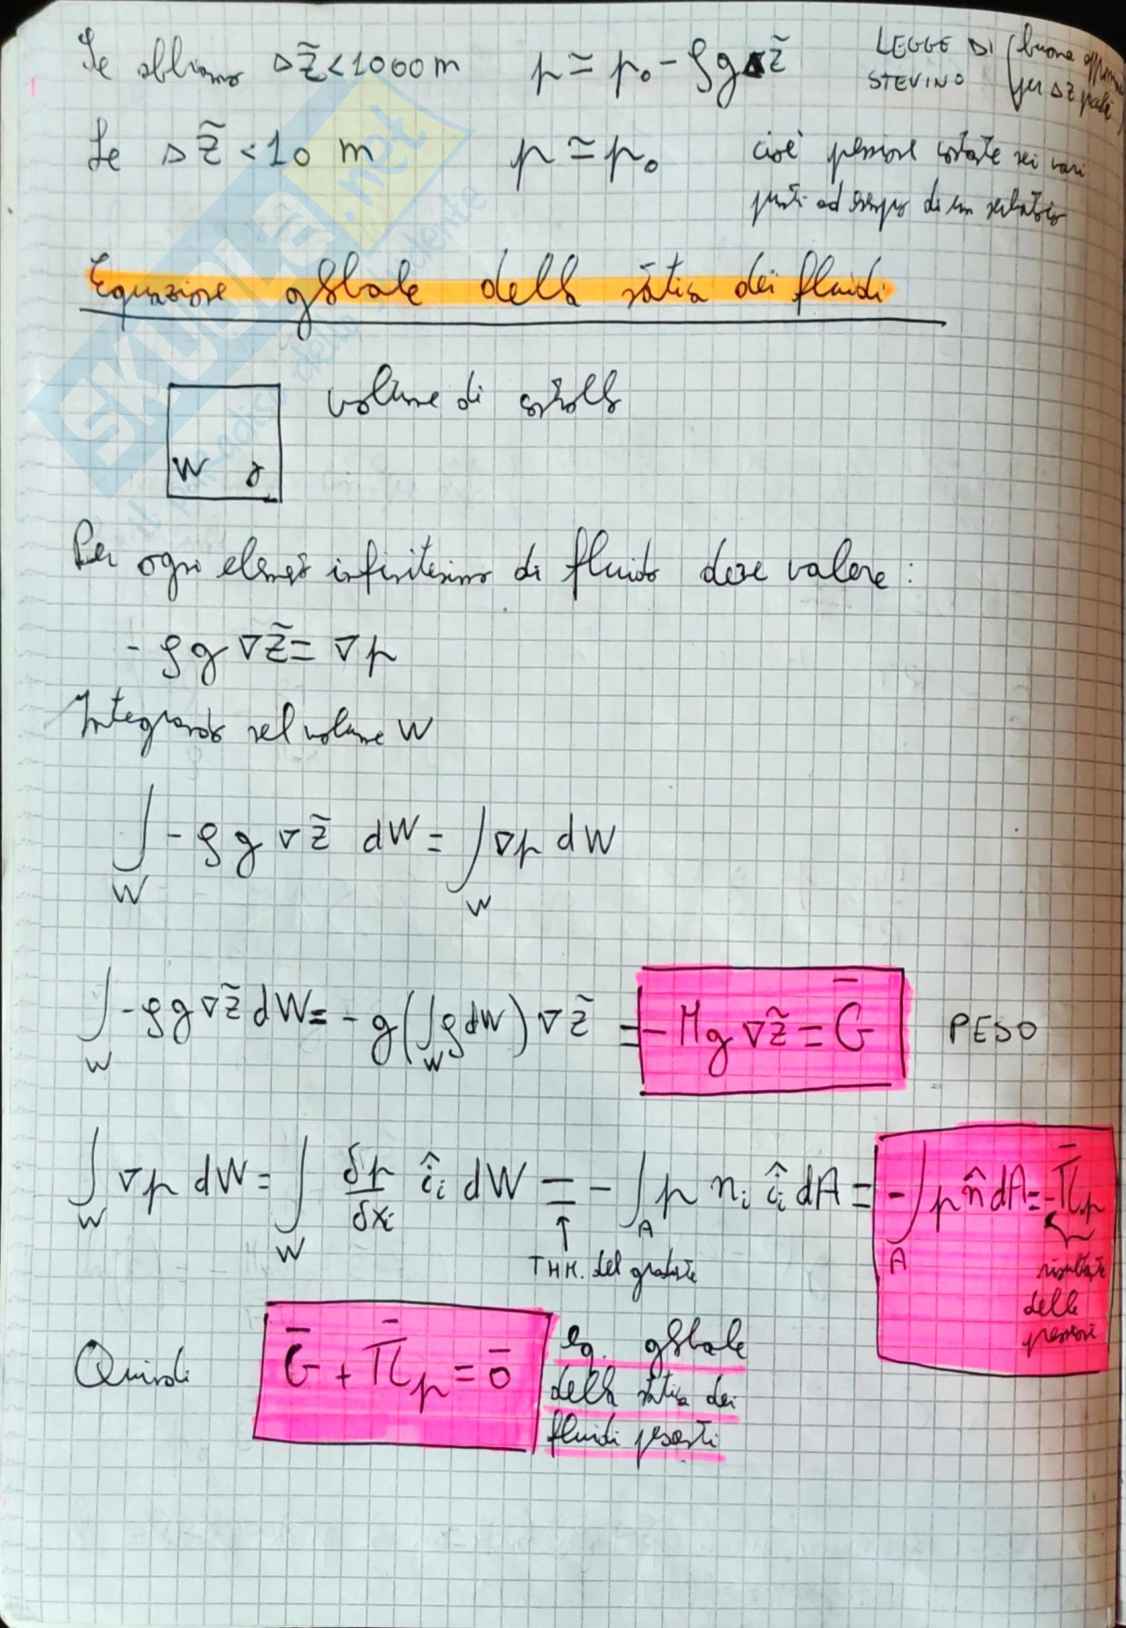 Se abbiamo Δz̃<1000m p ≃ p₀ - ρgΔz̃ LEGGE DI STEVINO (buona per Δz
Se Δz̃ < 10 m p ≃ p₀ cioè pressione costante nei vari
punti ad esempio di un serbatoio
Equazione globale della statica dei fluidi
volume di controllo
W γ
Per ogni elemento infinitesimo di fluido deve valere:
- ρg ∇z̃ = ∇p
Integrando nel volume W
∫_W -ρg∇z̃ dW = ∫_W ∇p dW
∫_W -ρg∇z̃ dW = -g(∫_W ρdW)∇z̃ = -Mg∇z̃ = G̅ PESO
∫_W ∇p dW = ∫_W δp/δxᵢ îᵢ dW = -∫_A p nᵢ îᵢ dA = -∫_A p n̂ dA = -Π̅p
THM. del gradiente
risultante
delle
pressioni
Quindi G̅ + Π̅p = 0̅ eq. globale
della statica dei
fluidi pesanti
SKUOLA.net